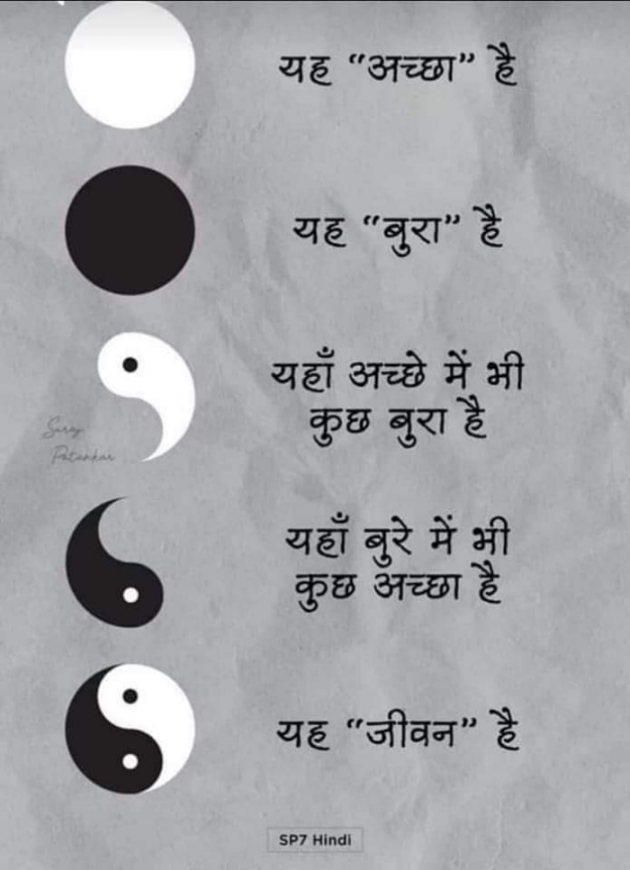 यह “अच्छा” है
यह “बुरा” है
यहाँ अच्छे में भी
कुछ बुरा है
Suraj
Patankar
यहाँ बुरे में भी
कुछ अच्छा है
यह “जीवन” है
SP7 Hindi